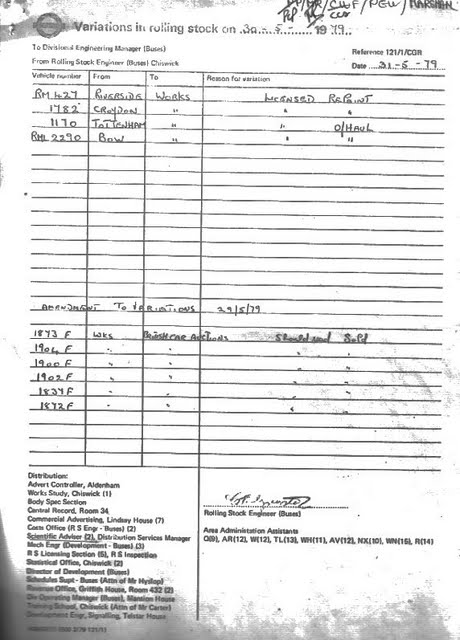 Variations in rolling stock on 30 - 5 - 1979.
To Divisional Engineering Manager (Buses)
From Rolling Stock Engineer (Buses) Chiswick
Reference 121/1/CGR
Date 31-5-79
Vehicle number From To Reason for variation
RM 427 RIVERSIDE WORKS LICENSED REPAINT
1782 CROYDON " " "
1170 TOTTENHAM " " O/HAUL
RML 2290 BOW " " "
AMENDMENT TO VARIATIONS 29/5/79
1873 F WKS AUCTIONS Should read Sold
1904 F " " " "
1900 F " " " "
1902 F " " " "
1834 F " " " "
1872 F " " " "
Distribution:
Advert Controller, Aldenham
Works Study, Chiswick (1)
Body Spec Section
Central Record, Room 34
Commercial Advertising, Lindsay House (7)
Costs Office (R S Engr - Buses) (2)
Scientific Adviser (2), Distribution Services Manager
Mech Engr (Development - Buses) (3)
R S Licensing Section (5), R S Inspection
Statistical Office, Chiswick (2)
Director of Development (Buses)
Schedules Supt - Buses (Attn of Mr Hyslop)
Revenue Office, Griffith House, Room 432 (2)
Operating Manager (Buses), Mansion House
Training School, Chiswick (Attn of Mr Carter)
Development Engr, Signalling, Telstar House
Rolling Stock Engineer (Buses)
Area Administration Assistants
Q(9), AR(12), W(12), TL(13), WH(11), AV(12), NX(10), WN(15), R(14)